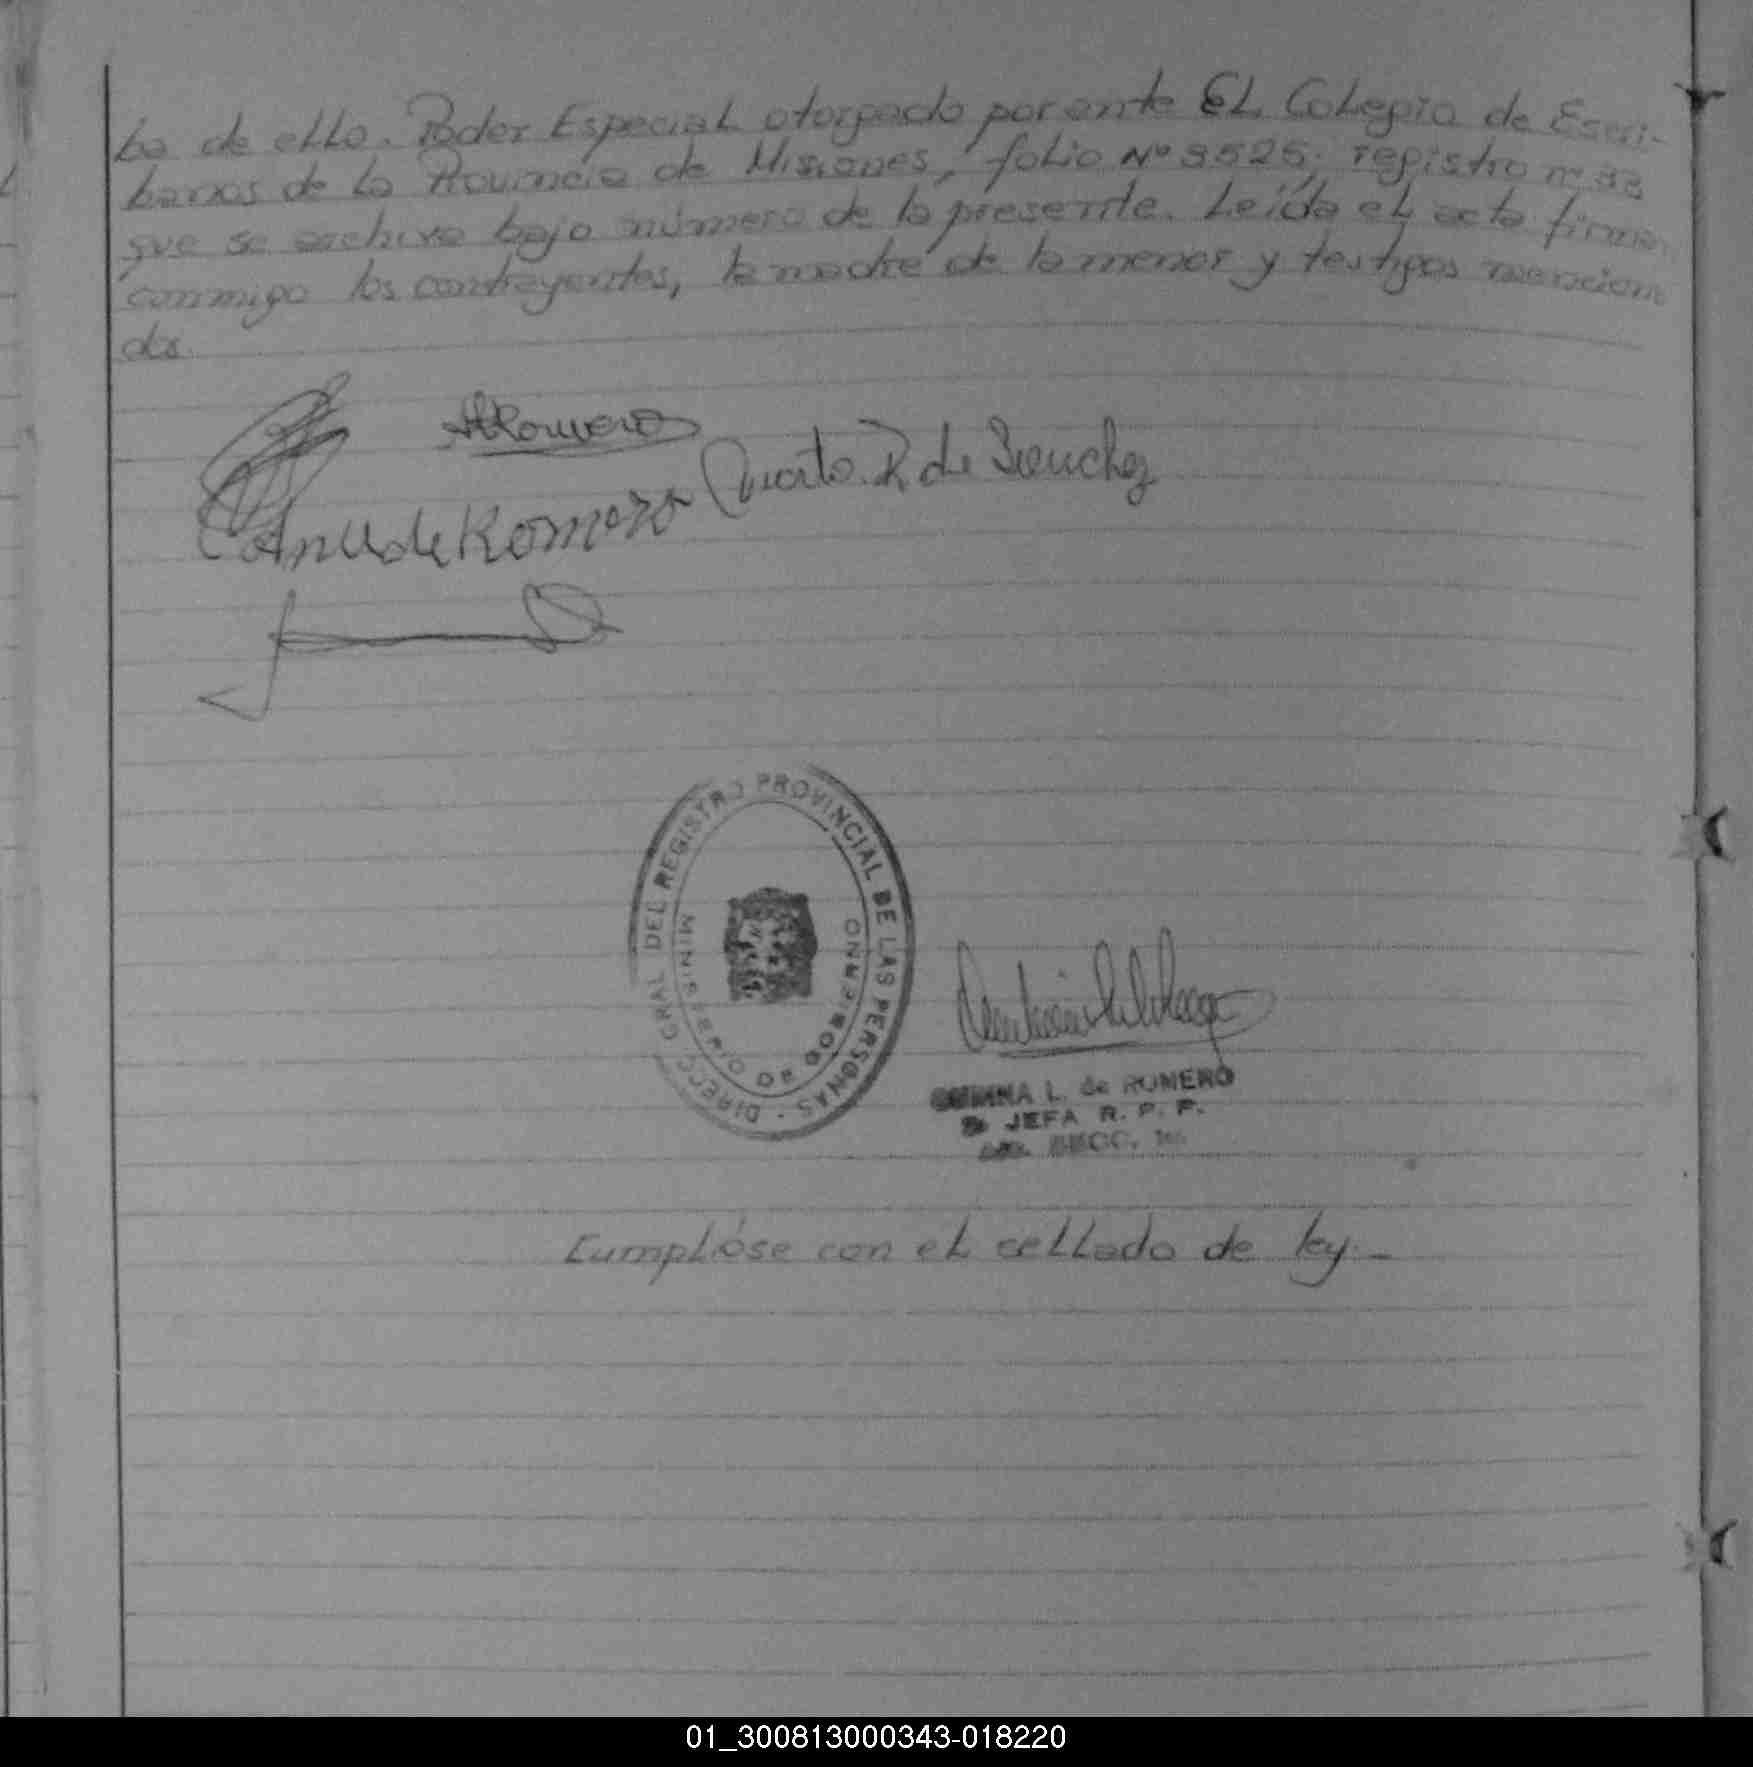 to de ello. Poder Especial otorgado por ante El Colegio de Escri-
banos de la Provincia de Misiones, folio Nº 3525, registro nº 33
que se archiva bajo número de la presente. Leída el acta firman
conmigo los contrayentes, la madre de la menor y testigos menciona
dos.
Romero
R de Sanchez
de Romero
DIRECC. GRAL DEL REGISTRO PROVINCIAL DE LAS PERSONAS -
MINISTERIO DE GOBIERNO
L. de ROMERO
JEFA R. P. P.
SECC.
Cumplióse con el sellado de ley.-
01_300813000343-018220